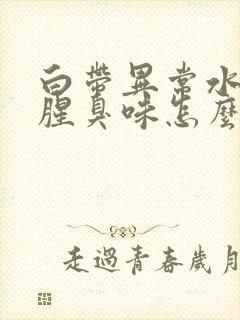 白帶異常水
腥臭味怎麼
走過青春歲月